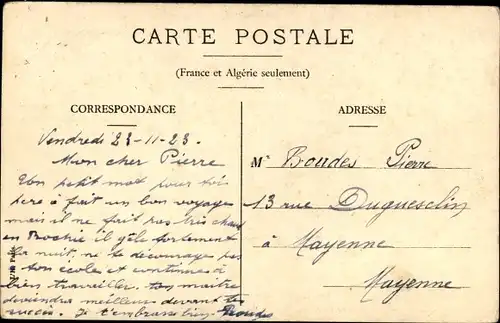 CARTE POSTALE
(France et Algérie seulement)
CORRESPONDANCE
Vendredi 23-11-23.
Mon cher Pierre
Un petit mot pour toi
père à fait un bon voyage
mais il ne fait pas très chaud
en il gèle fortement
la nuit, ne te décourage pas
à ton école et continues à
bien travailler. ton maître
deviendra meilleur devant tes
succès. Je t'embrasse bien Boudes
ADRESSE
M. Boudes Pierre
13 rue Duguesclin
à Mayenne
Mayenne